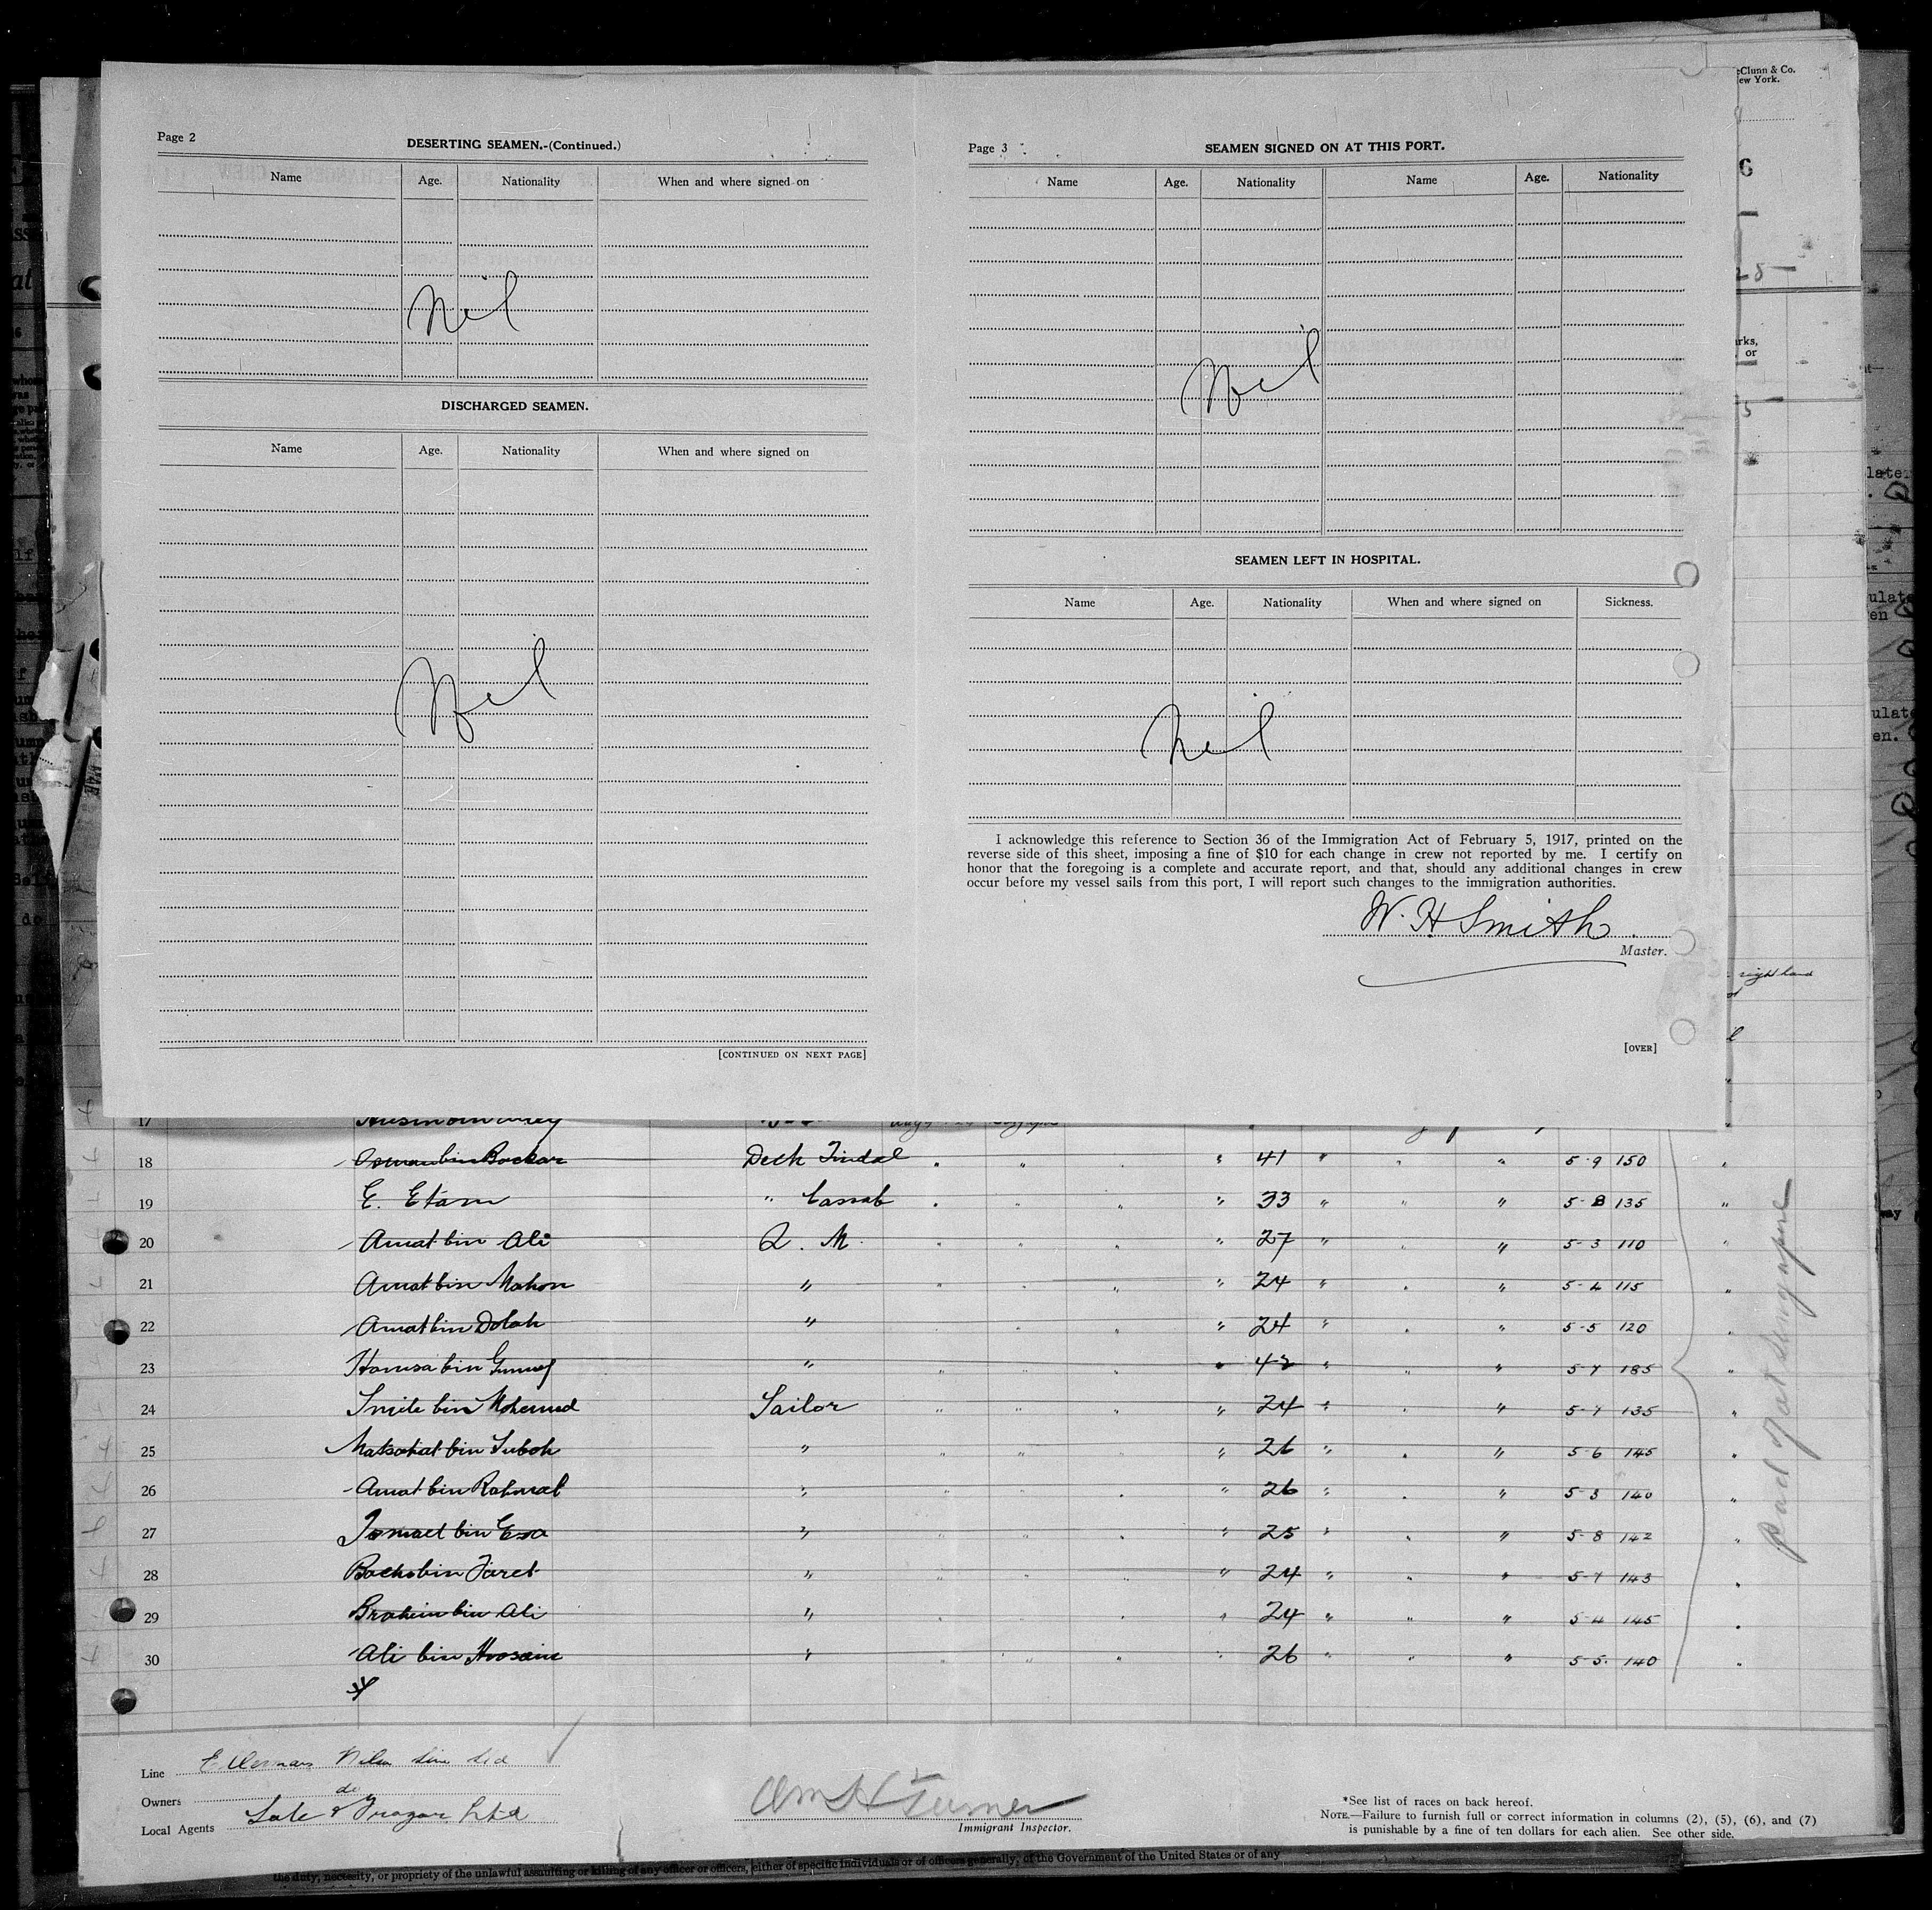 Page 2
DESERTING SEAMEN.-(Continued.)
Name Age. Nationality When and where signed on
Nil
DISCHARGED SEAMEN.
Name Age. Nationality When and where signed on
Nil
[CONTINUED ON NEXT PAGE]
Page 3
SEAMEN SIGNED ON AT THIS PORT.
Name Age. Nationality Name Age. Nationality
Nil
SEAMEN LEFT IN HOSPITAL.
Name Age. Nationality When and where signed on Sickness.
Nil
I acknowledge this reference to Section 36 of the Immigration Act of February 5, 1917, printed on the
reverse side of this sheet, imposing a fine of $10 for each change in crew not reported by me. I certify on
honor that the foregoing is a complete and accurate report, and that, should any additional changes in crew
occur before my vessel sails from this port, I will report such changes to the immigration authorities.
W. H Smith
Master.
[OVER]
17
18 Osman bin Backar Deck Tindal " " " " 41 " " " 5-9 150 "
19 E. Etam " Cassab " " " " 33 " " " 5-8 135 "
20 Amat bin Ali Q. M. " " " " 27 " " " 5-3 110 "
21 Amat bin Mahon " " " " " 24 " " " 5-4 115 "
22 Amat bin Dolah " " " " " 24 " " " 5-5 120 "
23 Hamsa bin " " " " " 42 " " " 5-7 185 "
24 Smile bin Mohamed Sailor " " " " 24 " " " 5-7 135 "
25 bin Suboh " " " " " 26 " " " 5-6 145 "
26 Amat bin Rahmat " " " " " 26 " " " 5-3 140 "
27 Ismael bin Esa " " " " " 25 " " " 5-8 142 "
28 bin Jaret " " " " " 24 " " " 5-7 143 "
29 Brahim bin Ali " " " " " 24 " " " 5-4 145 "
30 Ali bin Hosain " " " " " 26 " " " 5-5 140 "
Paid off at Singapore
Line Ellerman's Wilson Line Ltd
Owners do
Local Agents & Ltd
Wm H Turner
Immigrant Inspector.
*See list of races on back hereof.
NOTE.—Failure to furnish full or correct information in columns (2), (5), (6), and (7)
is punishable by a fine of ten dollars for each alien. See other side.
the duty, necessity, or propriety of the unlawful assaulting or killing of any officer or officers, either of specific individuals or of officers generally, of the Government of the United States or of any